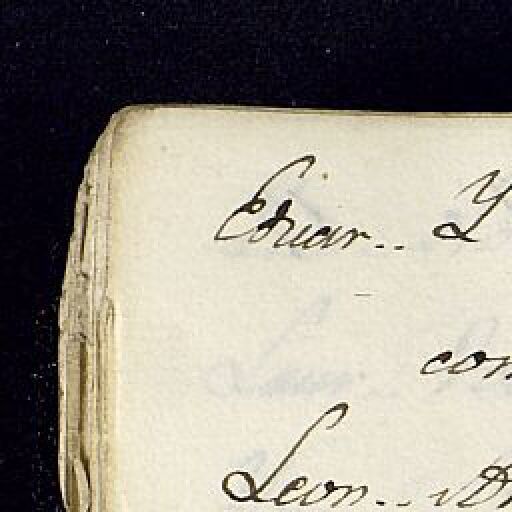 Eduar.. Y
con
Leon..